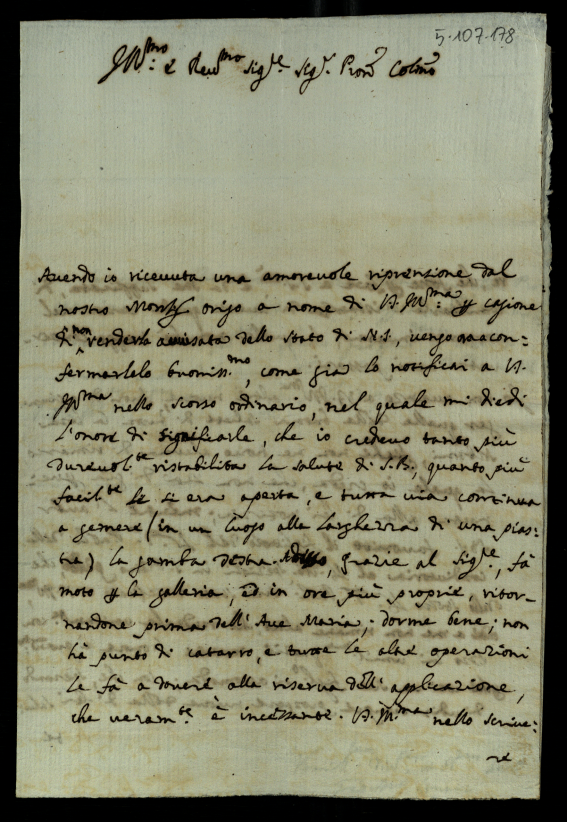 5-107-178
Ill.mo e Rev.mo Sig.re Sig.r Pron Colmo
Avendo io ricevuta una amorevole riprenzione dal
nostro Mons.r origo a nome di V. Ill.ma p cagione
di non renderla avvisata dello stato di N.S., vengo ora a con=
fermarlelo buoniss.mo, come già lo notificai a V.
Ill.ma nello scorso ordinario, nel quale mi diedi
l'onore di significarle, che io credevo tanto più
durevol.te ristabilita la salute di S.B., quanto più
facil.te se li era aperta, e tutta via continua
a gemere (in un luogo alla larghezza di una pias=
tra) la gamba destra. , grazie al Sig.re, fà
moto p la galleria, ed in ore più proprie, ritor=
nandone prima dell'Ave Maria; dorme bene; non
hà punto di catarro, e tutte le altre operazioni
le fà a dovere alla riserva dell'applicazione,
che veram.te è incessante. V. Ill.ma nello scrive=
re